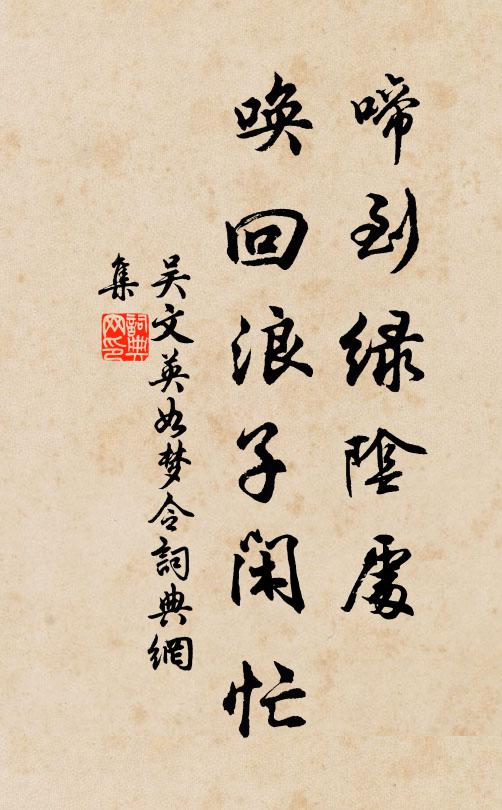 啼到绿陰處
唤回浪子閑忙
吴文英如梦令詞典網
集
詞典網印